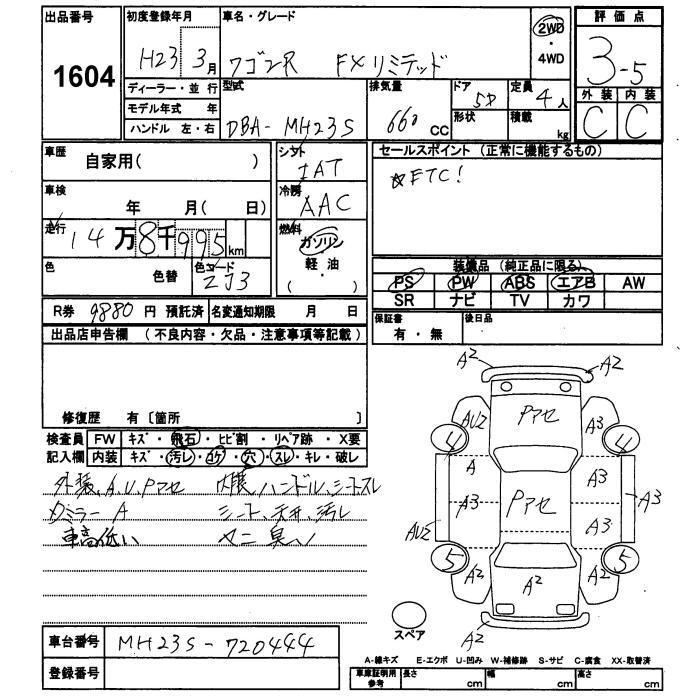 出品番号
1604
初度登録年月
H23 3月
ディーラー・並 行
モデル年式 年
ハンドル 左・右
車名・グレード
ワゴンR FXリミテッド
2WD
・
4WD
型式
DBA-MH23S
排気量
660 CC
ドア
5D
形状
定員
4人
積載
kg
評価点
3-5
外装 内装
C C
車歴
自家用( )
シフト
IAT
セールスポイント (正常に機能するもの)
☆ETC!
車検
年 月( 日)
冷房
AAC
走行
14万8千995km
燃料
ガソリン
・
軽油
( )
色
色替
色コード
ZJ3
装備品 (純正品に限る)
PS PW ABS エアB AW
SR ナビ TV カワ
R券 9880 円 預託済 名変通知期限 月 日
保証書
有・無
後日品
出品店申告欄 (不良内容・欠品・注意事項等記載)
修復歴 有〔箇所 〕
検査員
記入欄
FW キズ・飛石・ヒビ割・リペア跡・X要
内装 キズ・汚レ・コゲ・穴・スレ・キレ・破レ
外装、A、U、Pアセ
ハンドル、シートスレ
ミラー A
シート、天井、汚レ
車高低い
臭い
A2
A2
AU2
Pアセ
A3
4
4
A
A3
A3
Pアセ
A3
A3
AU2
5
5
A2
A2
A2
A2
スペア
車台番号 MH23S-720444
登録番号
A-線キズ E-エクボ U-凹み W-補修跡 S-サビ C-腐食 XX-取替済
車庫証明用
参考
長さ cm 幅 cm 高さ cm